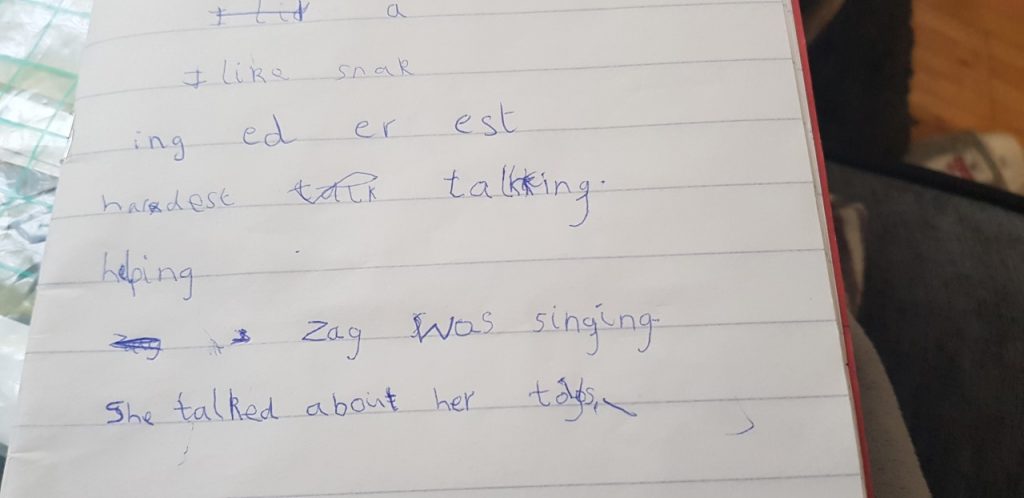 a
I like snak
ing ed er est
hardest talk talking.
helping
Zag Was singing.
She talked about her toys,